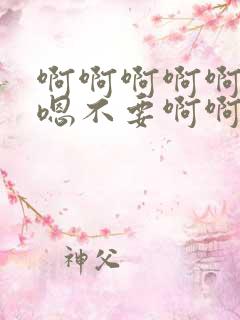 啊啊啊啊啊
嗯不要啊啊
神父